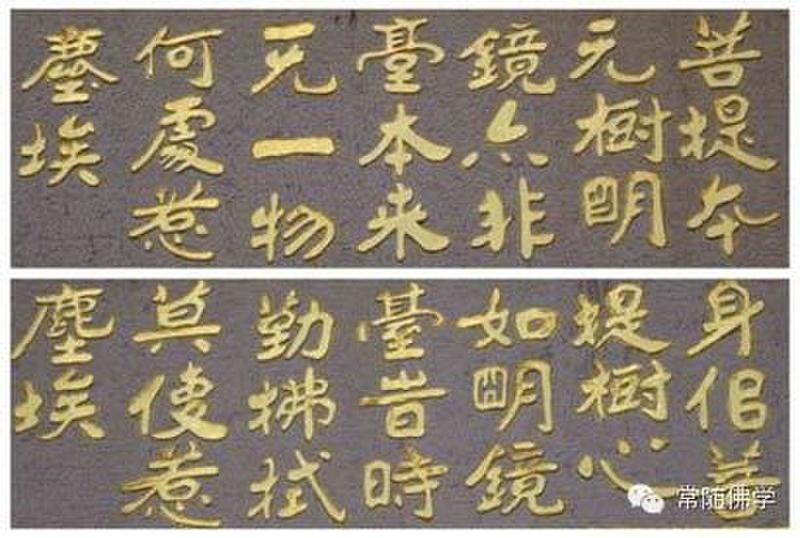 菩提本
无樹明
鏡亦非
臺本来
无一物
何處惹
塵埃
身佀菩
提樹心
如明鏡
臺旹時
勤拂拭
莫使惹
塵埃
常随佛学